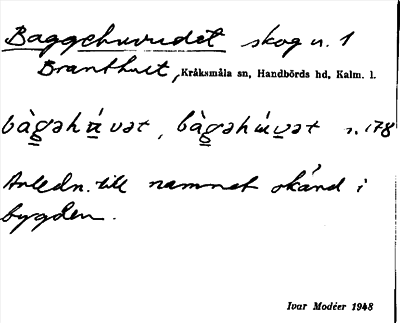 Baggehuvudet skog n. 1
Branthult, Kråksmåla sn, Handbörds hd, Kalm. l.
bàgəhúvət, bàgəhúvət s. 178
Anledn. till namnet okänd i
bygden.
Ivar Modéer 1948